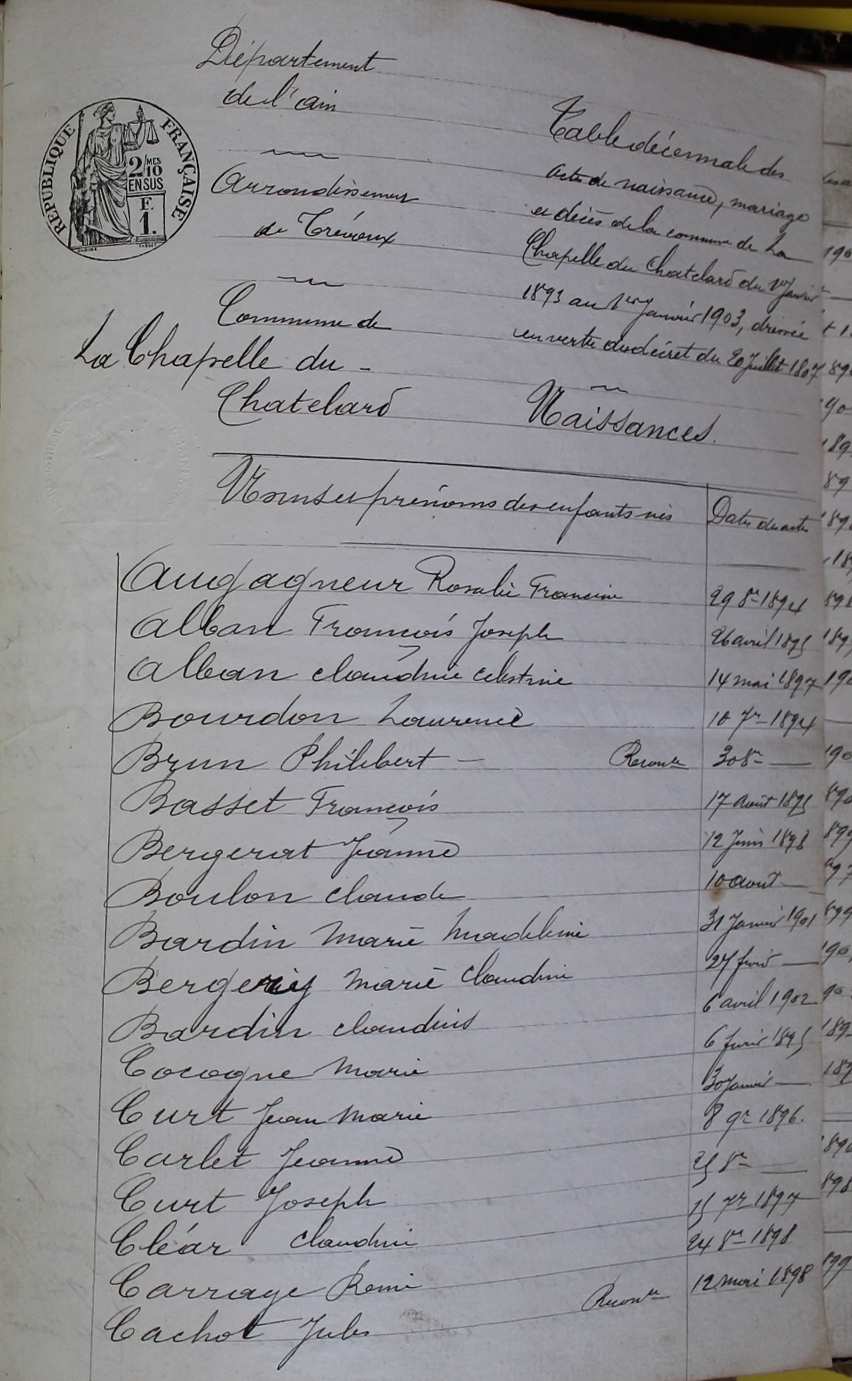 RÉPUBLIQUE FRANÇAISE
2 MES
10
EN SUS
F
1.
Département
de l'ain
Arrondissement
de Trévoux
Commune de
La Chapelle du -
Chatelard
Table décennale des
actes de naissance, mariage
et décès de la commune de La
Chapelle du Chatelard du 1er Janvier
1893 au 1er Janvier 1903, dressée
en vertu du décret du 20 Juillet 1807
Naissances.
Noms et prénoms des enfants nés
Date des actes
Augagneur Rosalie Francine 29 8re 1894
Alban François Joseph 26 avril 1895
Alban Claudine Celestine 14 mai 1897
Bourdon Laurence 10 7re 1894
Brun Philibert - Reconnue 30 8re —
Basset François 17 août 1895
Bergerat Jeanne 12 Juin 1898
Boulon Claude 10 août —
Bardin Marie Madeleine 31 Janvier 1901
Bergeriy Marie Claudine 27 févrir —
Bardin Claudius 6 avril 1902
Cocogne Marie 6 févrir 1895
Curt Jean Marie 30 Janvier —
Carlet Jeanne 8 9re 1896.
Curt Joseph 25 8re —
Cléar Claudine 15 7re 1897
Carrage Remi 24 8re 1898
Cachot Jules Reconnue 12 mai 1898